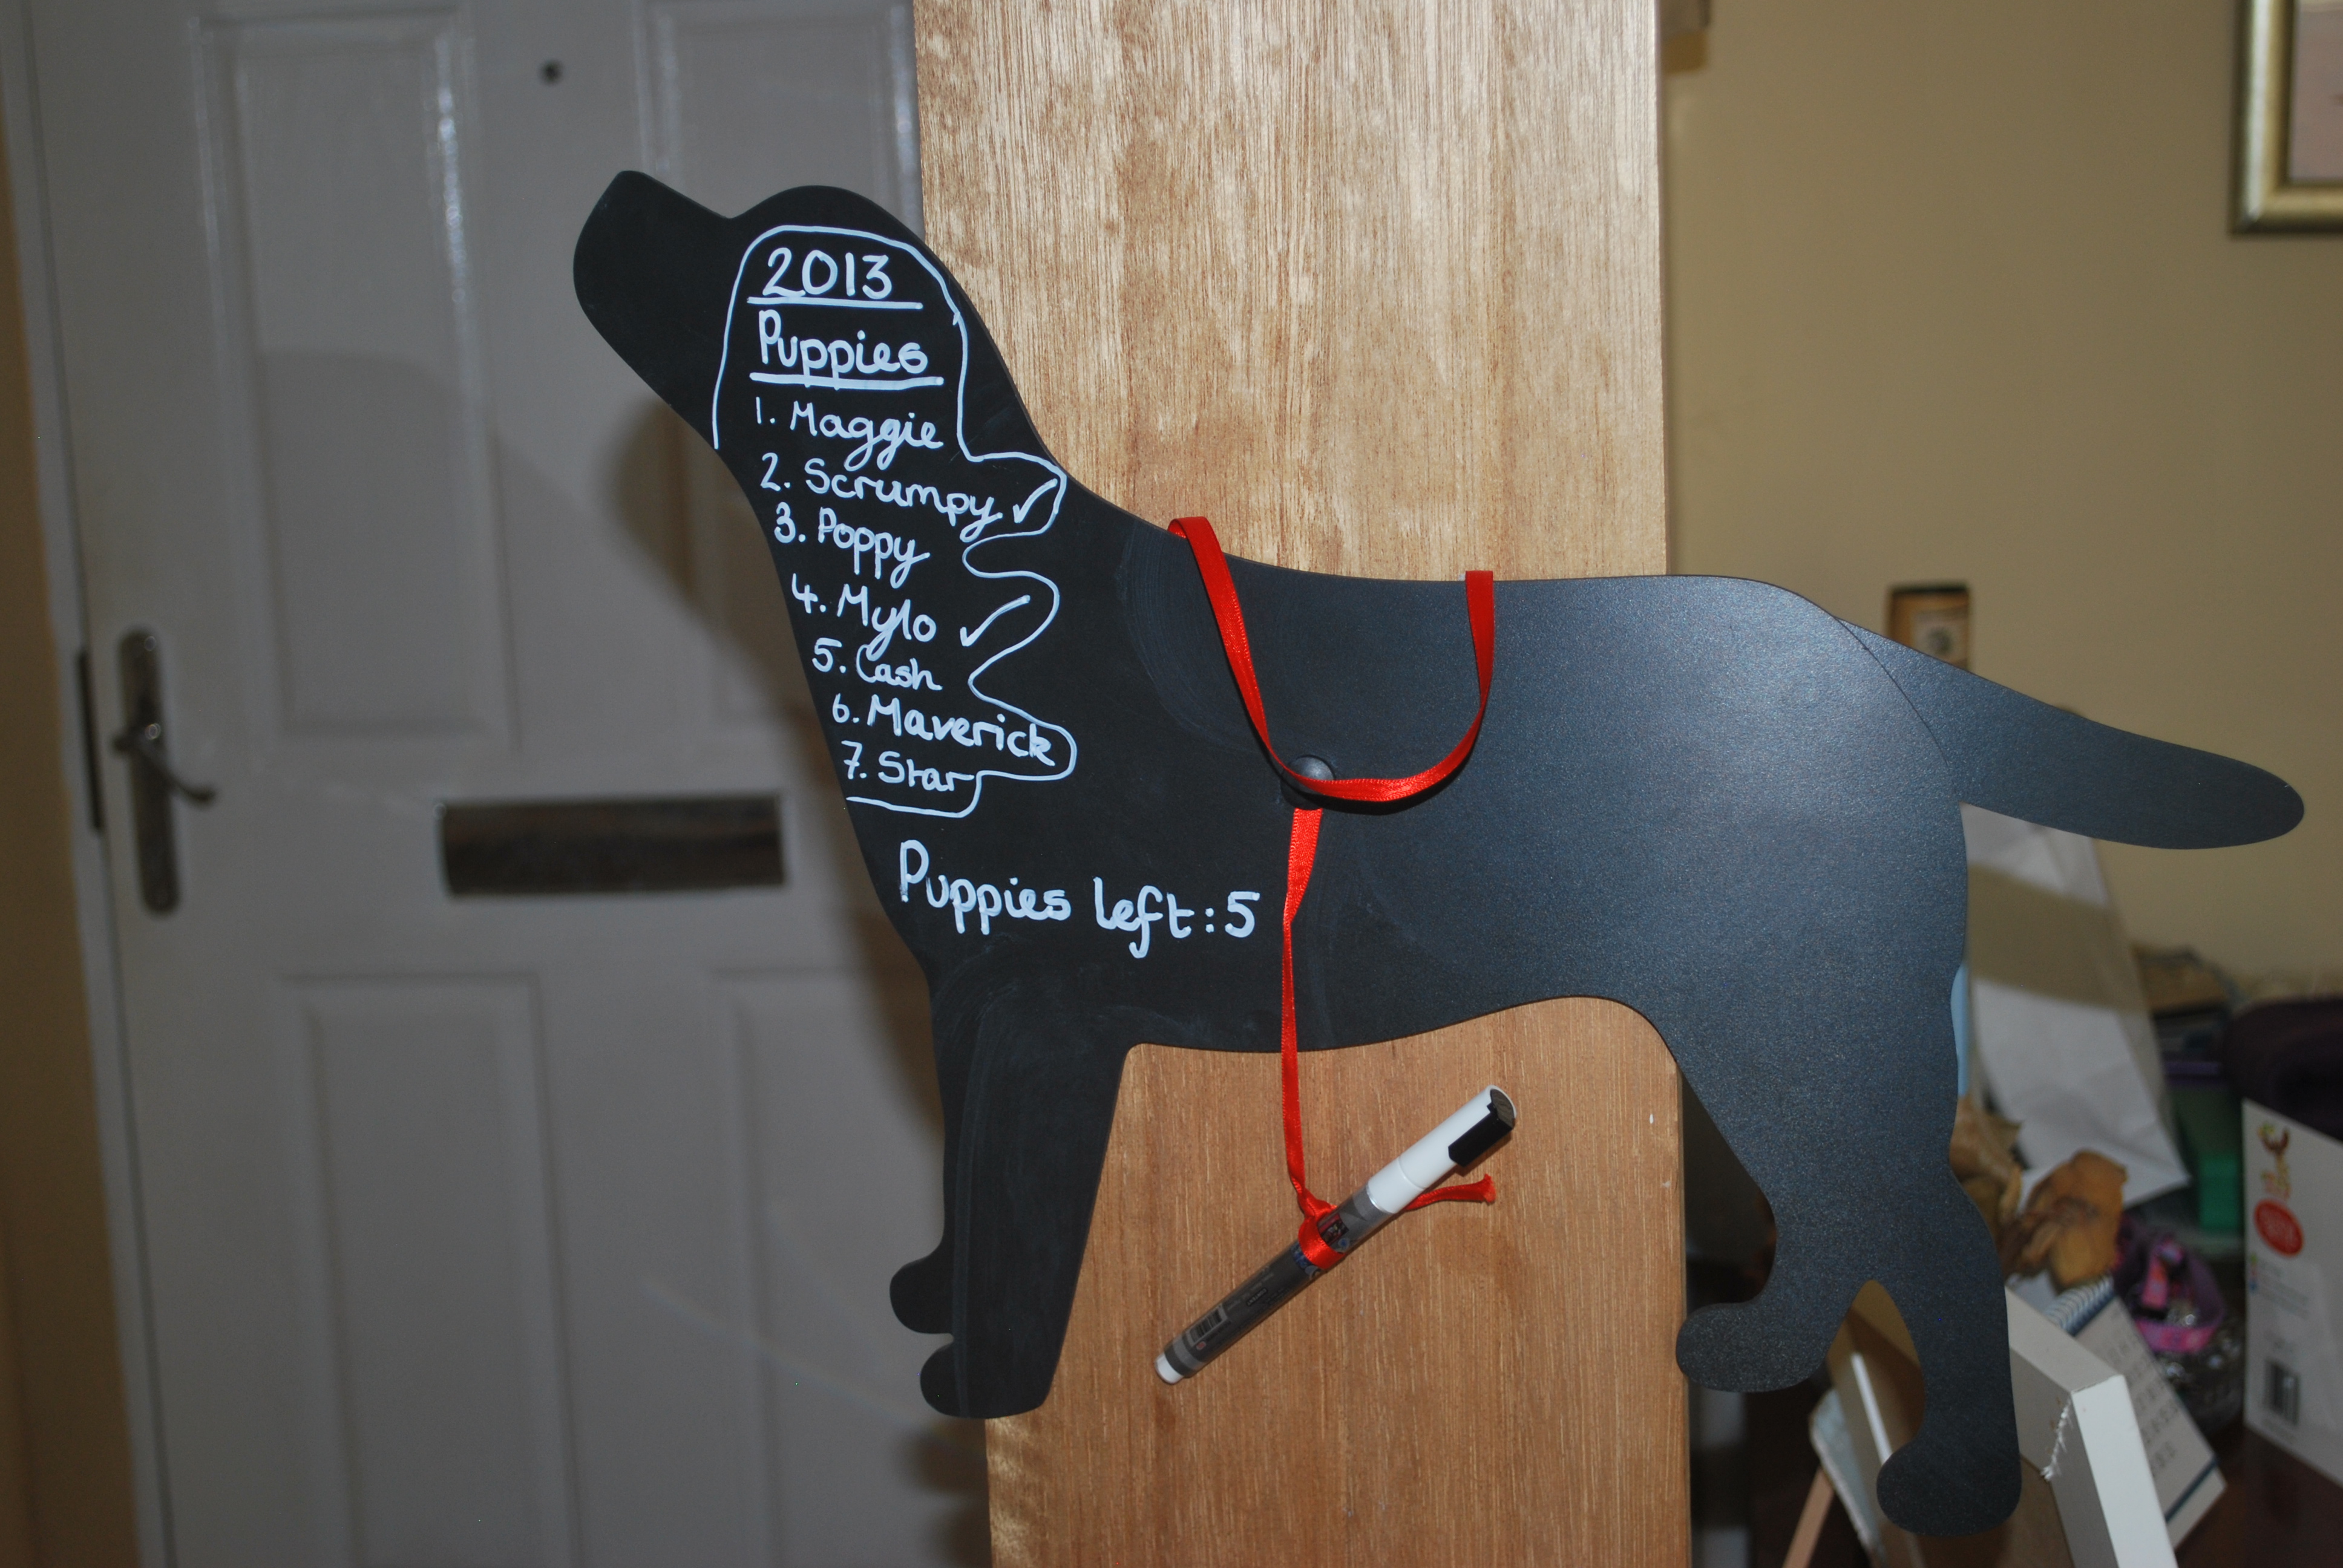 2013
Puppies
1. Maggie
2. Scrumpy ✓
3. Poppy
4. Mylo ✓
5. Cash
6. Maverick
7. Star
Puppies left: 5